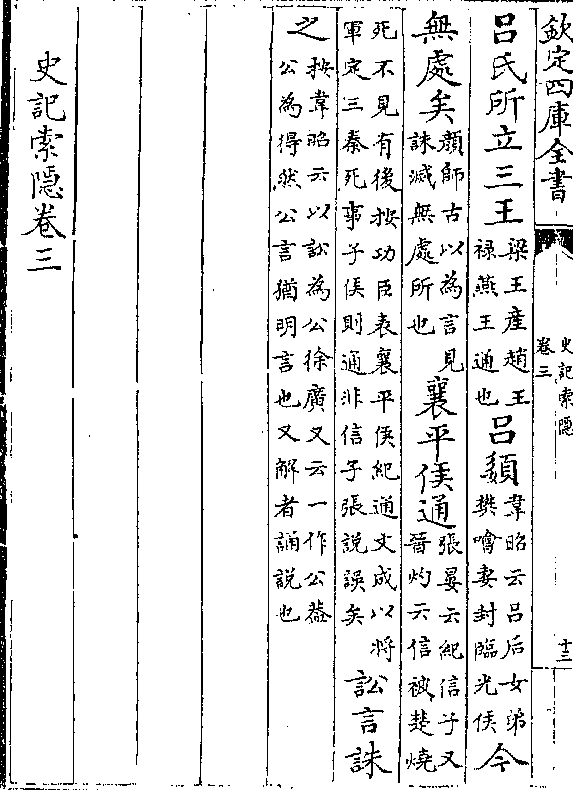 欽定四庫全書
史記索隱
卷三
十三
吕氏所立三王
梁王產趙王
禄燕王通也
吕嬃
韋昭云吕后女弟
樊噲妻封臨光侯
今
無處矣
顔師古以為言見
誅滅無處所也
襄平侯通
張晏云紀信子又
晉灼云信被楚燒
死不見有後按功臣表襄平侯紀通父成以將
軍定三秦死事子侯則通非信子張說誤矣
訟言誅
之
按韋昭云以訟為公徐廣又云一作公葢
公為得然公言猶明言也又解者誦說也
史記索隱卷三